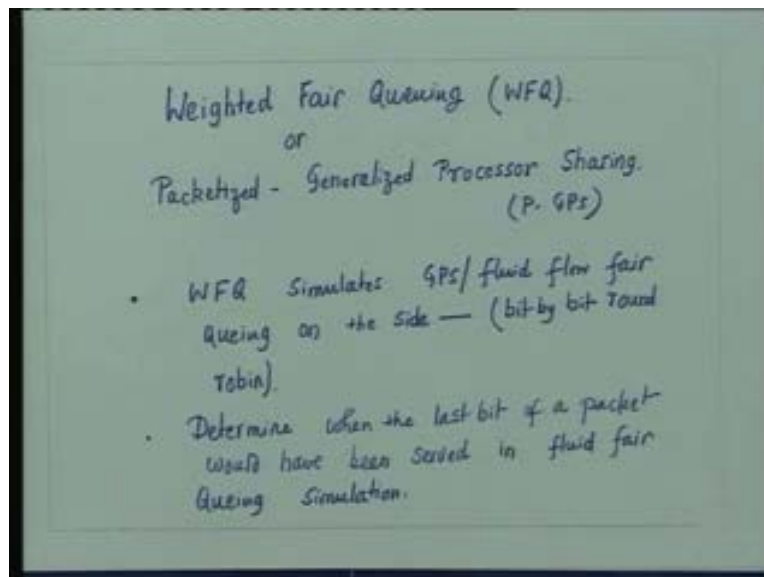 Weighted Fair Queuing (WFQ).
or
Packetized - Generalized Processor Sharing.
(P. GPS)
• WFQ Simulates GPS/fluid flow fair
Queing on the side — (bit by bit round
robin).
• Determine when the last bit of a packet
would have been served in fluid fair
Queing Simulation.